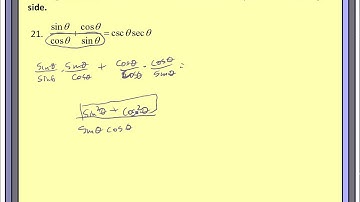 side.
21. sinθ/cosθ + cosθ/sinθ = cscθ secθ
sinθ/sinθ · sinθ/cosθ + cosθ/cosθ · cosθ/sinθ =
sin²θ + cos²θ
sinθ cosθ